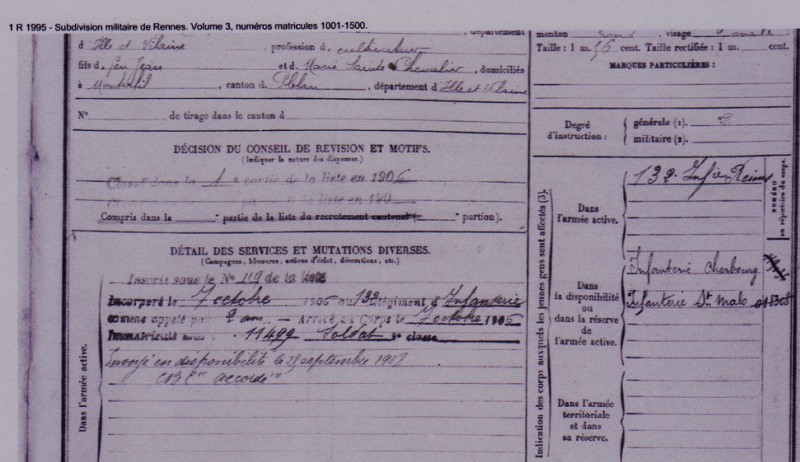 1 R 1995 - Subdivision militaire de Rennes. Volume 3, numéros matricules 1001-1500.
département
d'Ille et Vilaine profession d cultivateur
fils d feu Jean et d Marie Sainte Chevalier, domiciliés
à Monterfil, canton d Plélan, département d'Ille et Vilaine
N° de tirage dans le canton d
DÉCISION DU CONSEIL DE REVISION ET MOTIFS.
(Indiquer la nature des dispenses.)
Classé dans la 1e partie de la liste en 1906
partie de la liste en 190
Compris dans la partie de la liste du recrutement cantonal ( portion).
DÉTAIL DES SERVICES ET MUTATIONS DIVERSES.
(Campagnes, blessures, actions d'éclat, décorations, etc.)
Inscrit sous le N° 119 de la liste
Incorporé le 7 octobre 1906 au 132 Régiment d'Infanterie
comme appelé pour 2 ans — Arrivé au Corps le 7 octobre 1906
Immatriculé 11499 Soldat 2e classe
Envoyé en disponibilité le 28 septembre 1908
CBC "accordé"
Dans l'armée active.
menton rond, visage ovale
Taille : 1 m. 56 cent. Taille rectifiée : 1 m. cent.
MARQUES PARTICULIÈRES :
Degré d'instruction :
générale (1).
militaire (2).
Indication des corps auxquels les jeunes gens sont affectés (3).
NUMÉRO
au répertoire du corps.
Dans
l'armée active.
132e Infie Reims
Dans
la disponibilité
ou
dans la réserve
de
l'armée active.
Infanterie Cherbourg
Infanterie St malo
Dans l'armée
territoriale
et dans
sa réserve.